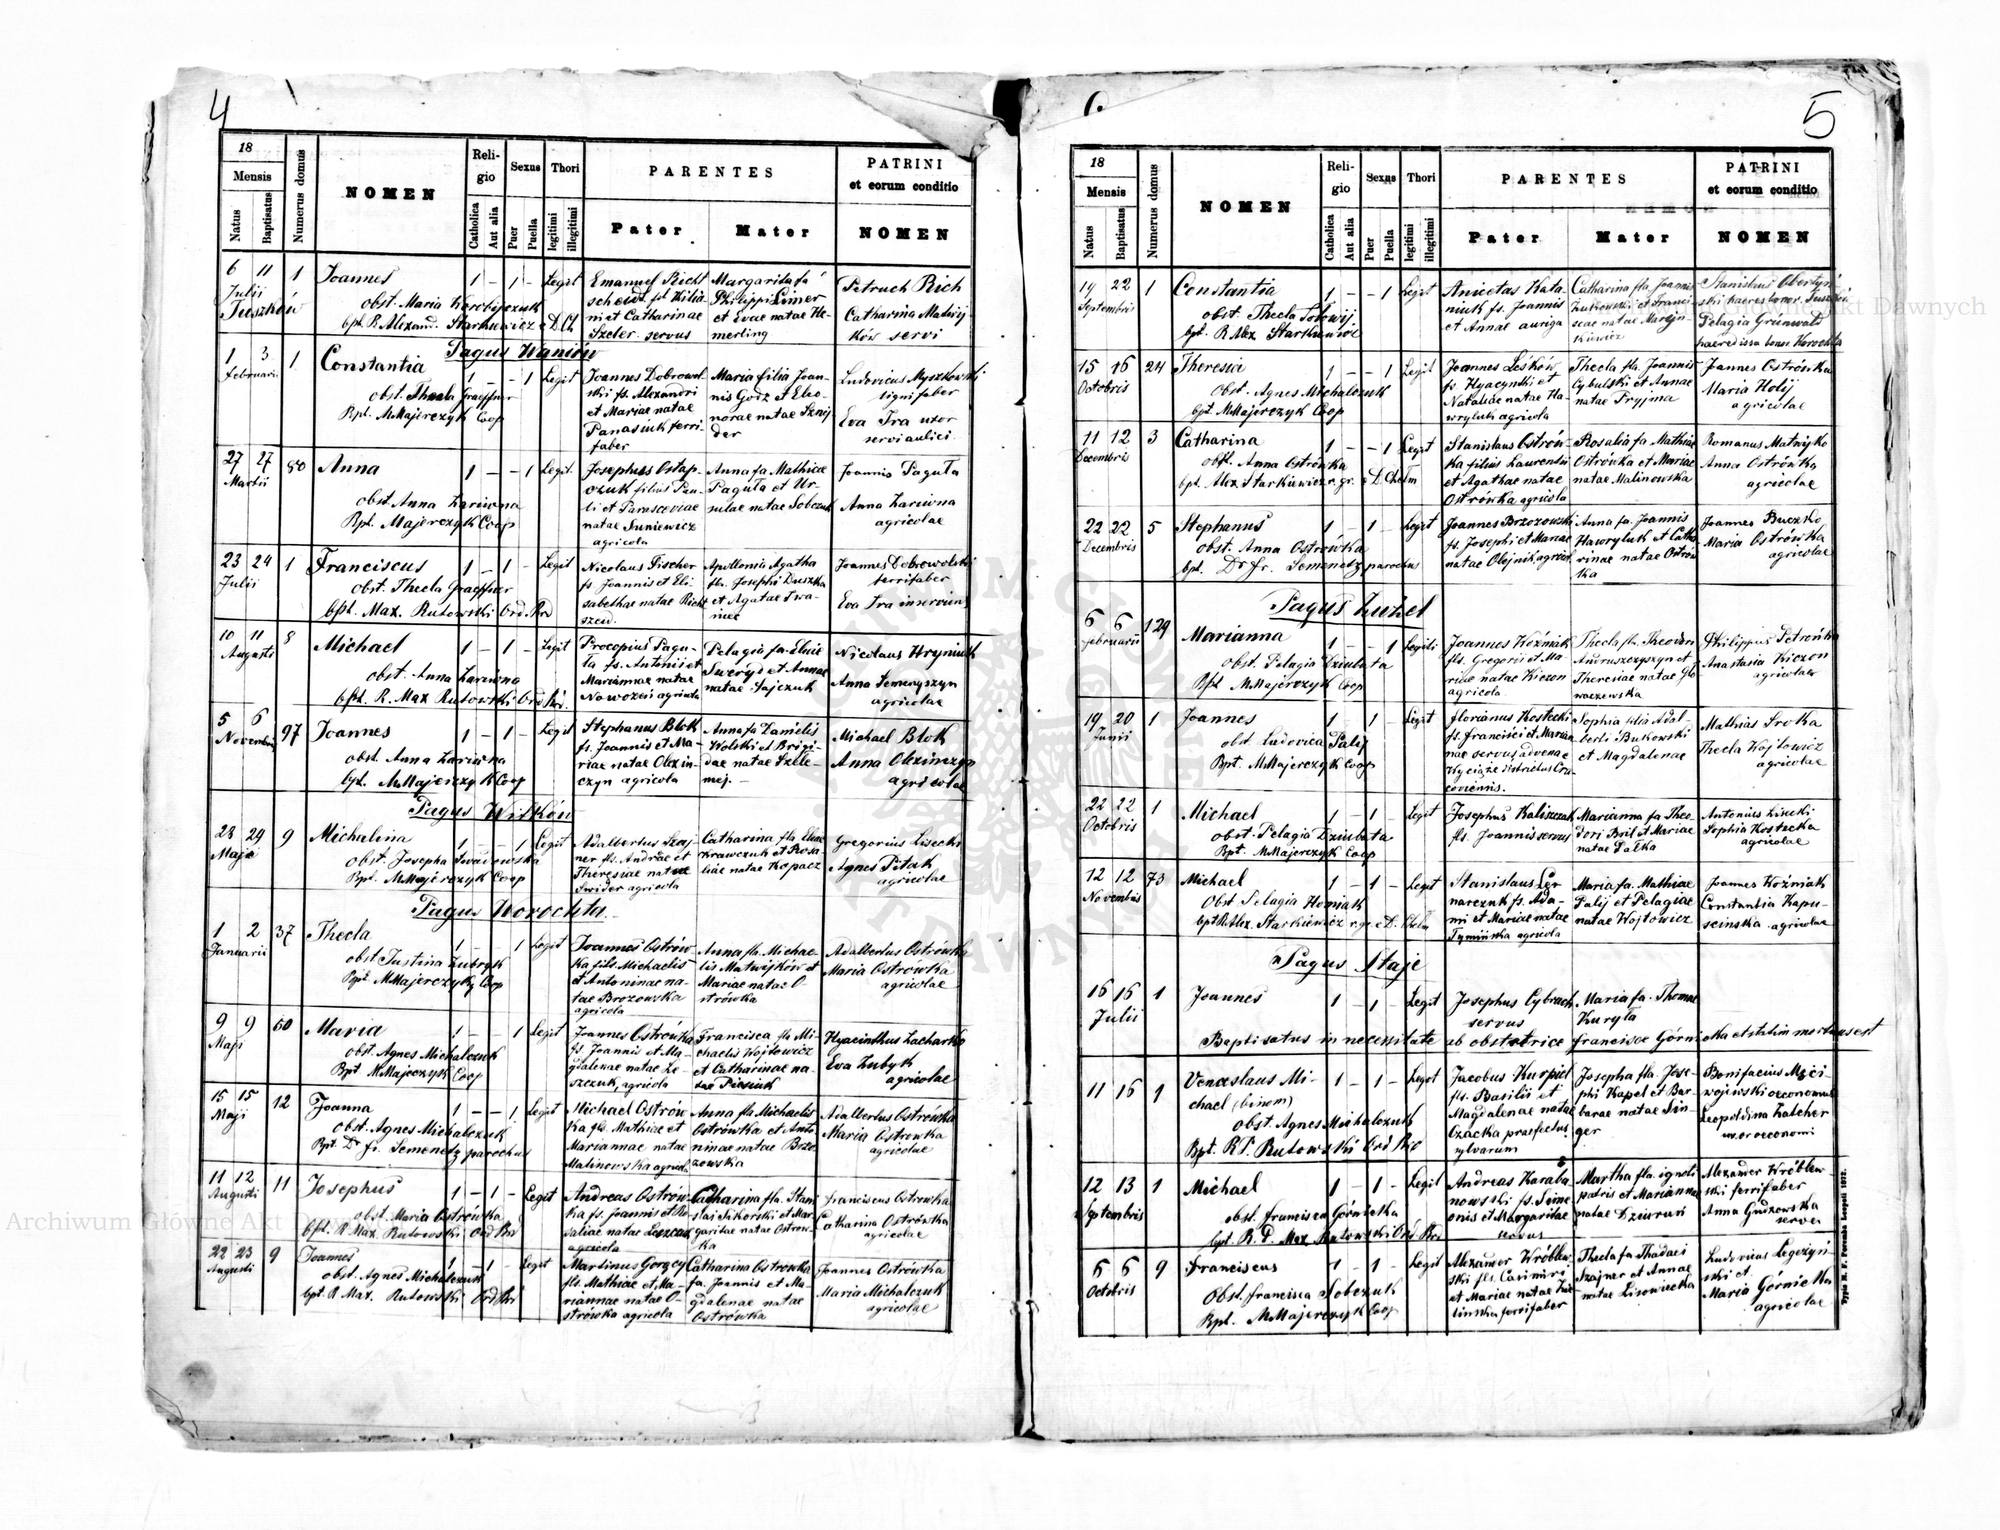 4
18
Mensis
Natus
Baptisatus
Numerus domus
NOMEN
Reli-
gio
Catholica
Aut alia
Sexus
Puer
Puella
Thori
legitimi
illegitimi
PARENTES
Pater
Mater
PATRINI
et eorum conditio
NOMEN
6 11 1 Joannes 1 - 1 - Legit
Julii
Tuszków
obst. Maria
bpt. R. Alexand. Starkiewicz
Emanuel Richt
scheid fs. Kilia-
ni et Catharinae
Szeler. servus
Margarita fa
Philippi Leimer
et Evae natae He-
merling
Petruch Rich
Catharina Matwij-
ków servi
Pagus Waniów
1 3 1 Constantia 1 - - 1 Legit
Februarii
obst. Thecla Graeffner
Bpt. M. Majerczyk Coop
Joannes Dobrowol
ski fs. Alexandri
et Mariae natae
Panasiuk ferri-
faber
Maria filia Joan-
nis Godz et Eleo-
norae natae Sznij
der
Ludovicus Myszkowski
signifaber
Eva Tra uxor
servi aulici
27 27 80 Anna 1 - - 1 Legit.
Martii
obst. Anna Zariwna
Bpt. Majerczyk Coop
Josephus Ostap-
czuk filius Pau-
li et Parasceviae
natae Suniewicz
agricola
Anna fa Mathiae
Paguta et Ur-
sulae natae Sobczuk
Joannis Paguta
Anna Zariwna
agricolae
23 24 1 Franciscus 1 - 1 - Legit
Julii
obst. Thecla Graeffner
bpt. Max. Rutowski Ord. Prd
Nicolaus Fischer
fs. Joannis et Eli
sabethae natae Richt
szeid.
Apollonia Agatha
fla. Josephi Duszka
et Agatae Iwa-
niec
Joannes Dobrowolski
ferrifaber
Eva Tra inserviens
10 11 8 Michael 1 - 1 - Legit
Augusti
obst. Anna Zariwna
bpt. R. Max Rutowski Ord Prd.
Procopius Pagu-
ta fs. Antonii et
Mariannae natae
Nowozeń agricola
Pelagia fa. Eliae
Sweryd et Annae
natae Sajczuk
Nicolaus Hryniuk
Anna Semenyszyn
agricolae
5 6 97 Joannes 1 - 1 - Legit
Novembris
obst. Anna Zariwna
bpt. M. Majerczyk Coop
Stephanus Blok
fs. Joannis et Ma-
riae natae Olexin-
czyn agricola
Anna fa Danielis
Wolski et Brigi-
dae natae Szele-
mej.
Michael Blok
Anna Olexinczyn
agricolae
Pagus Witków
28 29 9 Michalina 1 - - 1 Legit
Maja
obst. Josepha
Bpt. M. Majerczyk Coop
Adalbertus Szaj
ner fls. Andrae et
Theresiae natae
Swider agricola
Catharina fla Eliae
Krawczuk et Rosa-
liae natae Kopacz
Gregorius Lisecki
Agnes Pitak
agricolae
Pagus Worochta
1 2 37 Thecla 1 - - 1 Legit
Januarii
obst. Justina Zubryk
Bpt. M. Majerczyk Coop
Joannes Ostrów-
ka fils. Michaelis
et Antoninae na-
tae Brozowska
agricola
Anna fla. Michae-
lis Matwijków et
Mariae natae O-
strówka
Adalbertus Ostrówka
Maria Ostrowka
agricolae
9 9 50 Maria 1 - - 1 Legit
Maji
obst. Agnes Michalczuk
Bpt M. Majerczyk Coop
Joannes Ostrówka
fs. Joannis et Ma-
gdalenae natae Le-
szczuk, agricola
Francisca fla Mi-
chaelis Wojtowicz
et Catharinae na-
tae Piasiuk
Hyacinthus Zacharko
Eva Zubyk
agricolae
15 15 12 Joanna 1 - - 1 Legit
Maji
obst. Agnes Michalczuk
Bpt Dr Fr. Semenetz parochus
Michael Ostrów
ka fls Mathiae et
Mariannae natae
Malinowska agricola
Anna fla Michaelis
Ostrówka et Anto
ninae natae Brzo-
zowska
Adalbertus Ostrówka
Maria Ostrowka
agricolae
11 12 11 Josephus 1 - 1 - Legit
Augusti
obst. Maria Ostrówka
bpt. R Max. Rutowski Ord Prd
Andreas Ostrów-
ka fs. Joannis et Ro
saliae natae Leszczuk
agricola
Catharina fla. Stani
slai Sikorski et Mar-
garitae natae Ostrow-
ka
Franciscus Ostrowka
Catharina Ostrówka
agricolae
22 23 9 Joannes 1 - 1 - Legit
Augusti
obst. Agnes Michalczuk
bpt. R Max. Rutowski Ord Prd
Martinus Gorzcy
fls. Mathiae et Ma-
riannae natae O-
strówka agricola
Catharina Ostrowka
fa. Joannis et Ma-
gdalenae natae
Ostrówka
Joannes Ostrówka
Maria Michalczuk
agricolae
5
18
Mensis
Natus
Baptisatus
Numerus domus
NOMEN
Reli-
gio
Catholica
Aut alia
Sexus
Puer
Puella
Thori
legitimi
illegitimi
PARENTES
Pater
Mater
PATRINI
et eorum conditio
NOMEN
19 22 1 Constantia 1 - - 1 Legit
Septembris
obst. Thecla
bpt. R Alex Starkiewicz
Anicetas Kata-
niuk fs. Joannis
et Annae auriga
Catharina fla, Joannis
Zubkowski et Franci-
scae natae
Stanislaus Obertyń
ski haeres bonor. Tuszków
Pelagia Grunwald
haeredissa bonor Worochta
15 16 24 Theresia 1 - - 1 Legit
Octobris
obst. Agnes Michalczuk
bpt. M. Majerczyk Coop
Joannes Leśków
fs. Hyacynthi et
Nataliae natae Ha-
wryluk agricola
Thecla fla. Joannis
Cybulski et Annae
natae Pryjma
Joannes Ostrówka
Maria Holij
agricolae
11 12 3 Catharina 1 - - 1 Legit
Decembris
obst. Anna Ostrówka
bpt. Alex Starkiewicz r. gr. e D. Chelm
Stanislaus Ostrów-
ka filius Laurentii
et Agathae natae
Ostrówka agricola
Rosalia fa Mathiae
Ostrówka et Mariae
natae Malinowska
Romanus Matwijko
Anna Ostrówka
agricolae
22 22 5 Stephanus 1 - 1 - Legit
Decembris
obst. Anna Ostrówka
bpt. Dr Fr. Semenetz parochus
Joannes Brzozowski
fs. Josephi et Mariae
natae Olejnik agricol
Anna fa. Joannis
Hawryluk et Catha
rinae natae Ostrów
ka
Joannes Buczko
Maria Ostrówka
agricolae
Pagus Zuzel
6 6 129 Marianna 1 - - 1 Legiti
Februarii
obst. Pelagia Dziubata
Bpt M. Majerczyk Coop
Joannes Koźniak
fls. Gregorii et Ma-
riae natae Kiczon
agricola
Thecla fla. Theodori
Andruszczyszyn et
Theresiae natae Glo
waczewska
Philippus Petrońko
Anastasia Kiczon
agricolae
19 20 1 Joannes 1 - 1 - Legit
Junii
obst. Ludovica Palij
Bpt. M. Majerczyk Coop
Florianus Kostecki
fs. Francisci et Marian
nae servus, advena e
Wyciąże districtus Cra-
coviensis.
Sophia filia Adal-
berti Bukowski
et Magdalenae
Mathias Sroka
Thecla Wojtowicz
agricolae
22 22 1 Michael 1 - 1 - Legit
Octobris
obst. Pelagia Dziubata
Bpt. M. Majerczyk Coop
Josephus Kaliszczak
fls. Joannis servus
Marianna fa Theo
dori Bril et Mariae
natae Palka
Antonius Lisecki
Sophia Kostecka
agricolae
12 12 73 Michael 1 - 1 - Legit
Novembris
Obst Pelagia Homiak
bpt R. Alex. Starkiewicz r. gr. e D. Chelm
Stanislaus Ler
narczuk fs. Ada-
mi et Mariae natae
Tymińska agricola
Maria fa. Mathiae
Palij et Pelagiae
natae Wojtowicz
Joannes Koźniak
Constantia Kapu-
scinska agricolae
Pagus Staje
16 16 1 Joannes 1 - 1 - Legit
Julii
Josephus Cybrach
servus
Maria fa. Thomae
Kuryla
Baptisatus in necessitate ab obstetrice Francisca Górnicka et statim mortuus est
11 16 1 Venceslaus Mi- 1 - 1 - Legit
chael (binom)
obst. Agnes Michalczuk
Bpt. R. P. Rutowski Ord Prd
Jacobus Kurpiel
fls. Basilii et
Magdalenae natae
Czacka praefectus
sylvarum
Josepha fla. Jose-
phi Kapel et Bar-
barae natae Sin-
ger
Bonifacius Meci-
wojewski oeconomus
Leopoldina Zalcher
uxor oeconomi
12 13 1 Michael 1 - 1 - Legit
Septembris
obst. Francisca Górnicka
bpt. R. P. Max Rutowski Ord. Prd
Andreas Karaba-
nowski fs. Sime-
onis et Margaritae
servus
Martha fla. ignoti
patris et Mariannae
natae Dziuruń
Alexander Wróblew-
ski ferrifaber
Anna Gużowska
servi
6 6 9 Franciscus 1 - 1 - Legit
Octobris
Obst. Francisca Sobczuk
Bpt. M. Majerczyk Coop
Alexander Wróblew-
ski fls. Casimiri
et Mariae natae
ferrifaber
Thecla fa Thadaei
Szajner et Annae
natae Lisowiecka
Ludovicus Legeżyń
ski et
Maria Górnicka
agricolae
Typis H. F. Poremba Leopoli 1872.
Archiwum Główne Akt Dawnych